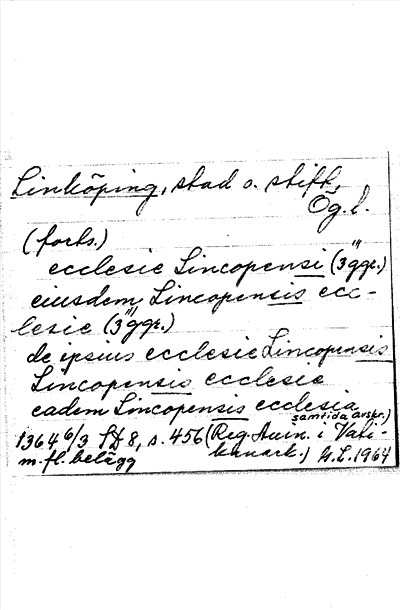 Linköping, stad o. stift,
Ög. l.
(forts.)
ecclesie Lincopensi (3 ggr.)
eiusdem Lincopensis ecc-
lesie (3 ggr.)
de ipsius ecclesie Lincopensis
Lincopensis ecclesie
eadem Lincopensis ecclesia
1364 6/3 SD 8, s. 456 (Reg. Avin. i Vati-
kanark.) samtida avskr.)
m. fl. belägg G.L. 1964